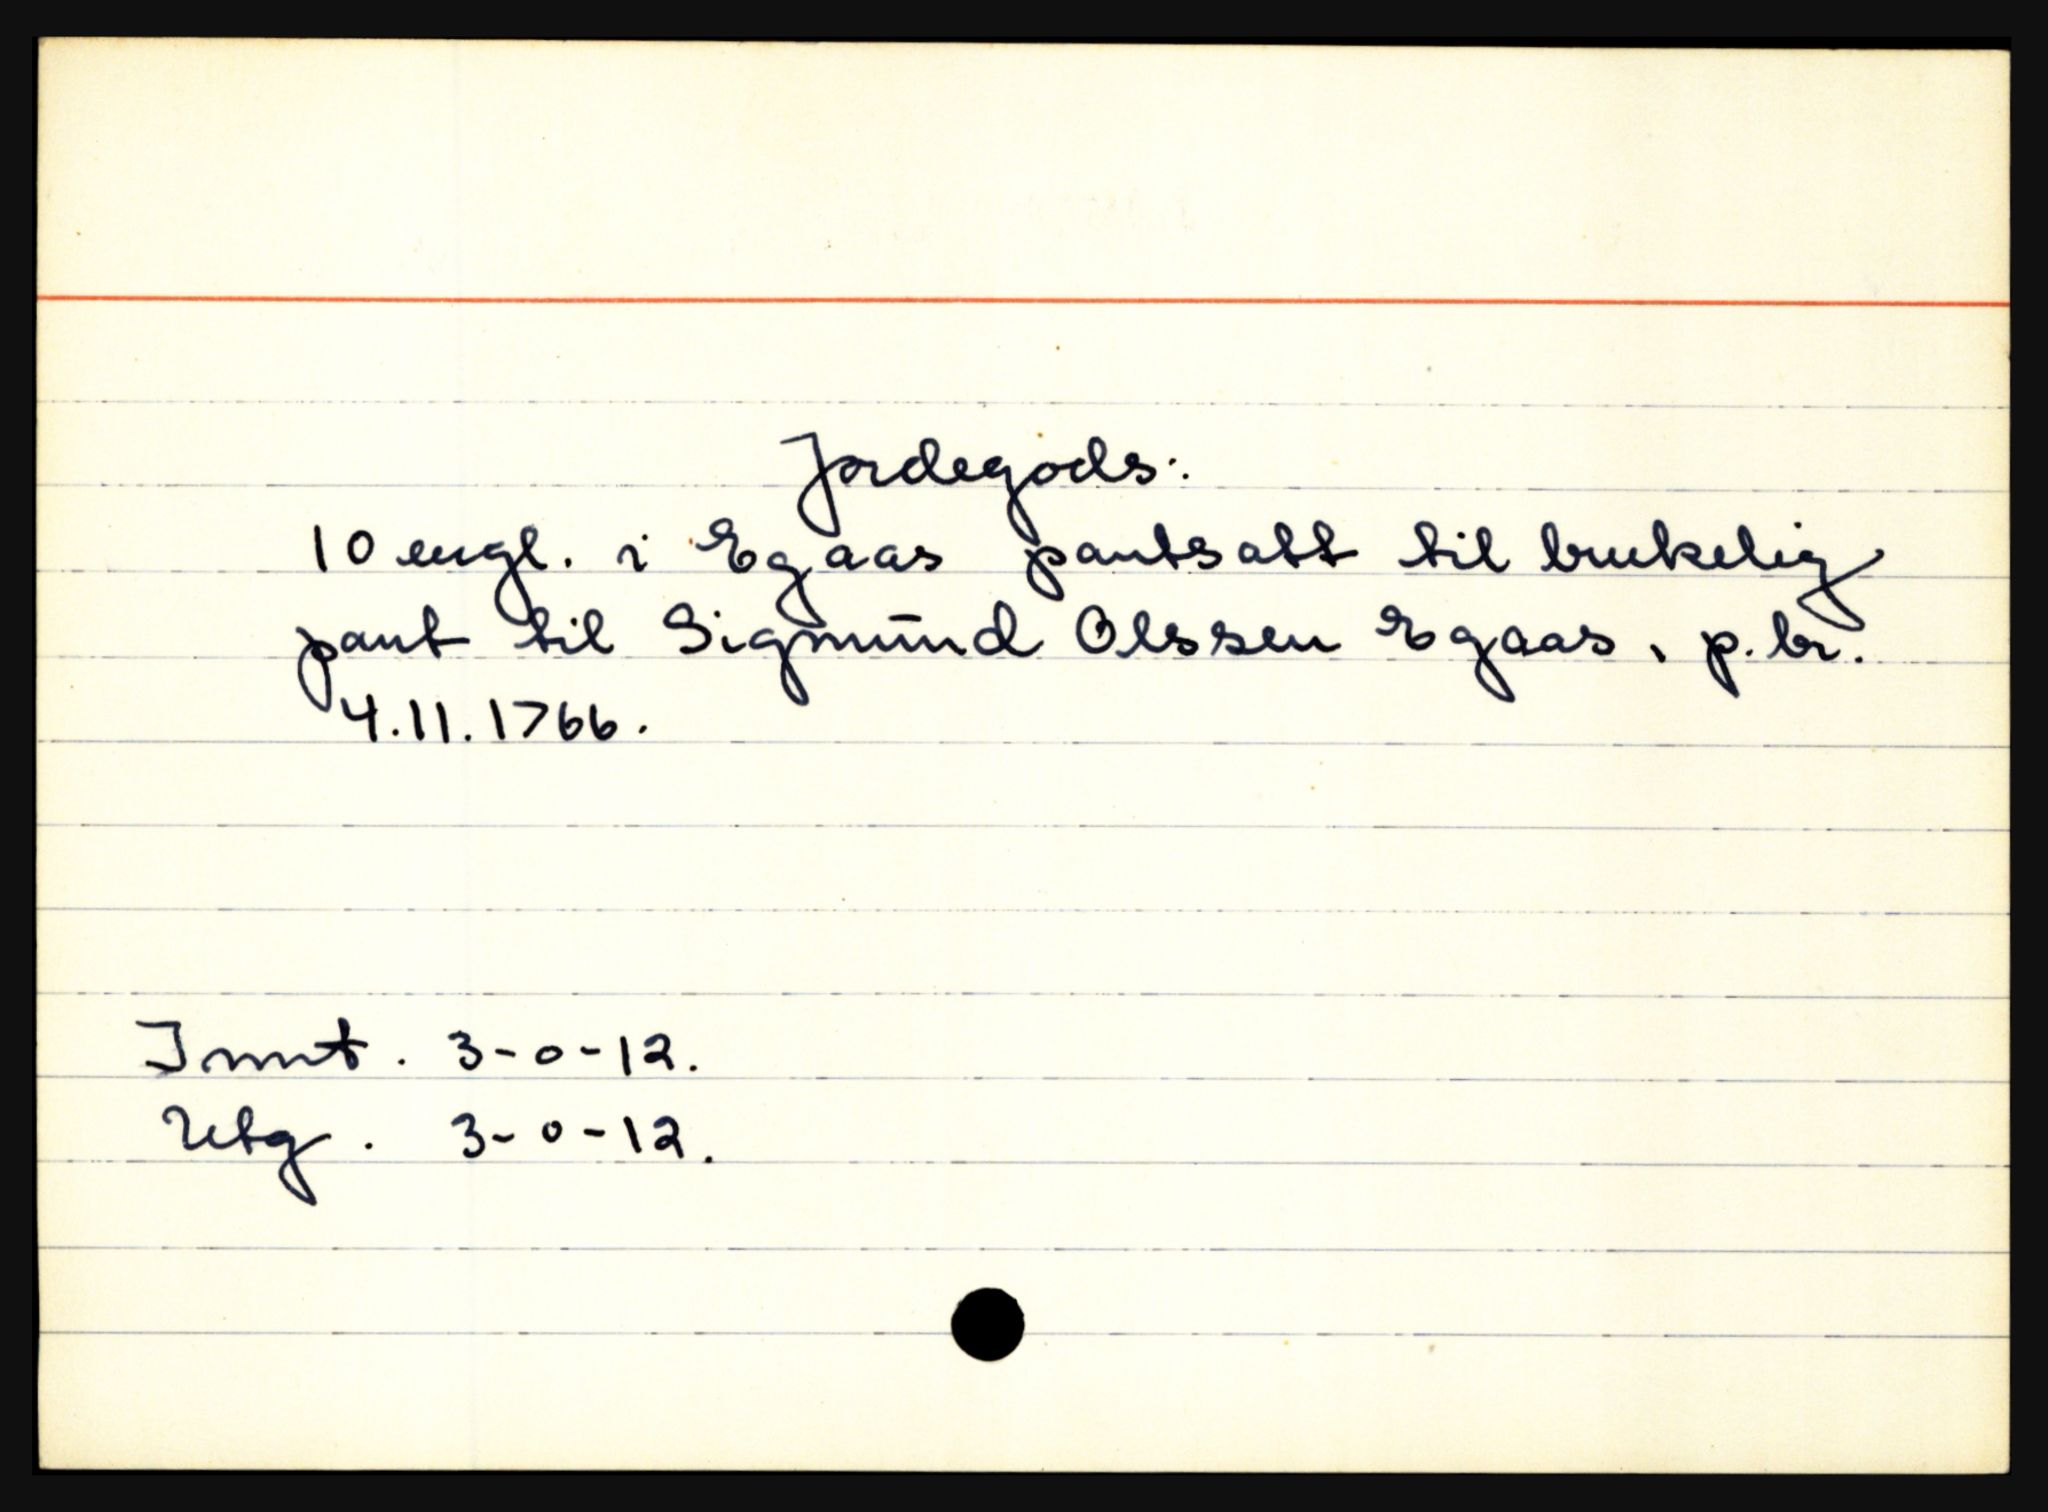 Jordegods:
10 engl. i Egaas pantsatt til brukelig
pant til Sigmund Olssen Egaas, p.br.
4.11.1766.
Innt. 3-0-12.
Utg. 3-0-12.